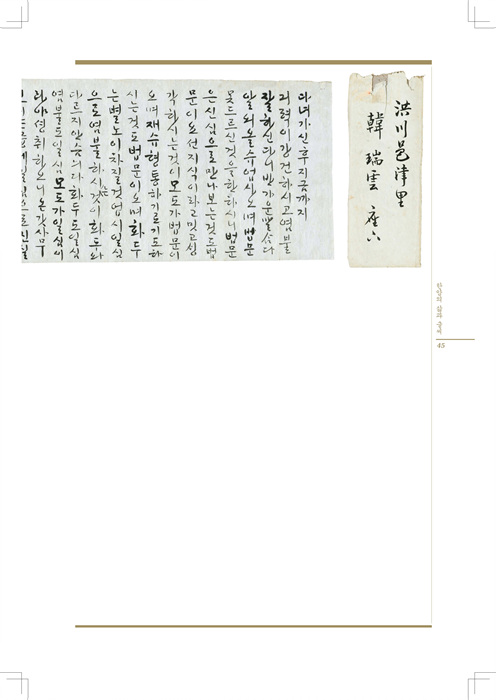 洪川邑津里
韓 瑞雲 座下
다녀가신후지금까지
긔력이강건하시고염불
잘하신다니반가운
알외올슈업사오며법문
못드르신것을한하시니법문
은신심으로만나보는것도법
문이요선지식이라고밋고생
각하시는것이모도가법문이
오며재슈형통하기르기도하
시는것도법문이오며화두
는별노이차질것업시일심
으로염불하시는것이화두와
다르지안슴니다화두도일심
염불도일심모도가일심이
라야셩취하오니온갓사무
한암의 삶과
45